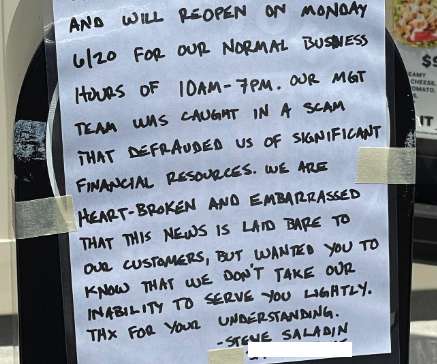 AND WILL REOPEN ON MONDAY
6/20 FOR OUR NORMAL BUSINESS
HOURS OF 10AM-7PM. OUR MGT
TEAM WAS CAUGHT IN A SCAM
THAT DEFRAUDED US OF SIGNIFICANT
FINANCIAL RESOURCES. WE ARE
HEART-BROKEN AND EMBARRASSED
THAT THIS NEWS IS LAID BARE TO
OUR CUSTOMERS, BUT WANTED YOU TO
KNOW THAT WE DON'T TAKE OUR
INABILITY TO SERVE YOU LIGHTLY.
THX FOR YOUR UNDERSTANDING.
-STEVE SALADIN
$
CHEESE,
IT